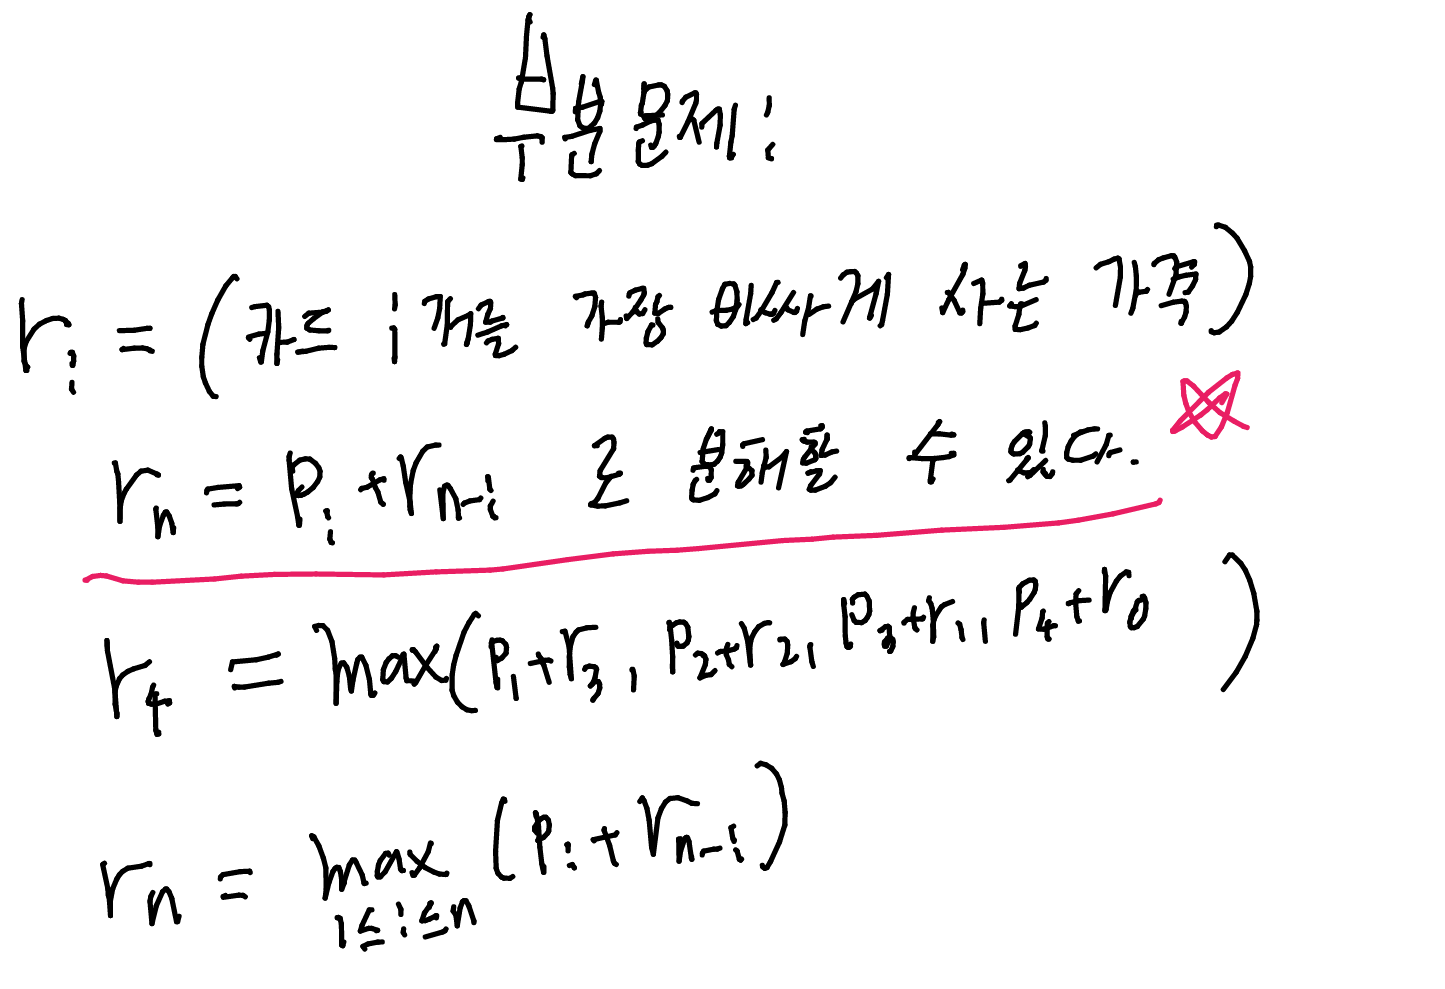 부분문제:
r_i = (카드 i개를 가장 비싸게 사는 가격)
r_n = P_i + r_{n-i} 로 분해할 수 있다.
r_4 = max(P_1+r_3, P_2+r_2, P_3+r_1, P_4+r_0)
r_n = max_{1≤i≤n} (P_i + r_{n-i})